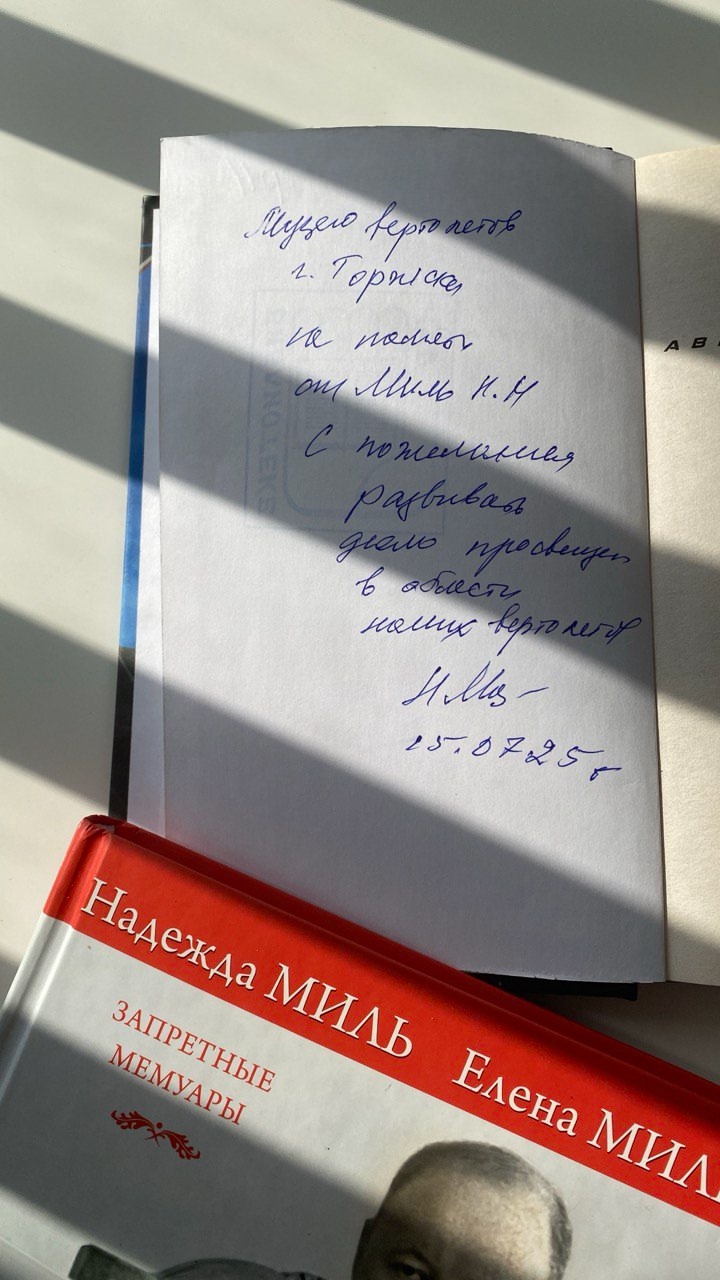 Музею вертолетов
г. Торжка
на память
от Миль Н.М
С пожеланием
развивать
дело просвещен
в области
наших вертолетов
НМиль
15.07.25г
АВ
Надежда МИЛЬ Елена МИЛ
ЗАПРЕТНЫЕ
МЕМУАРЫ